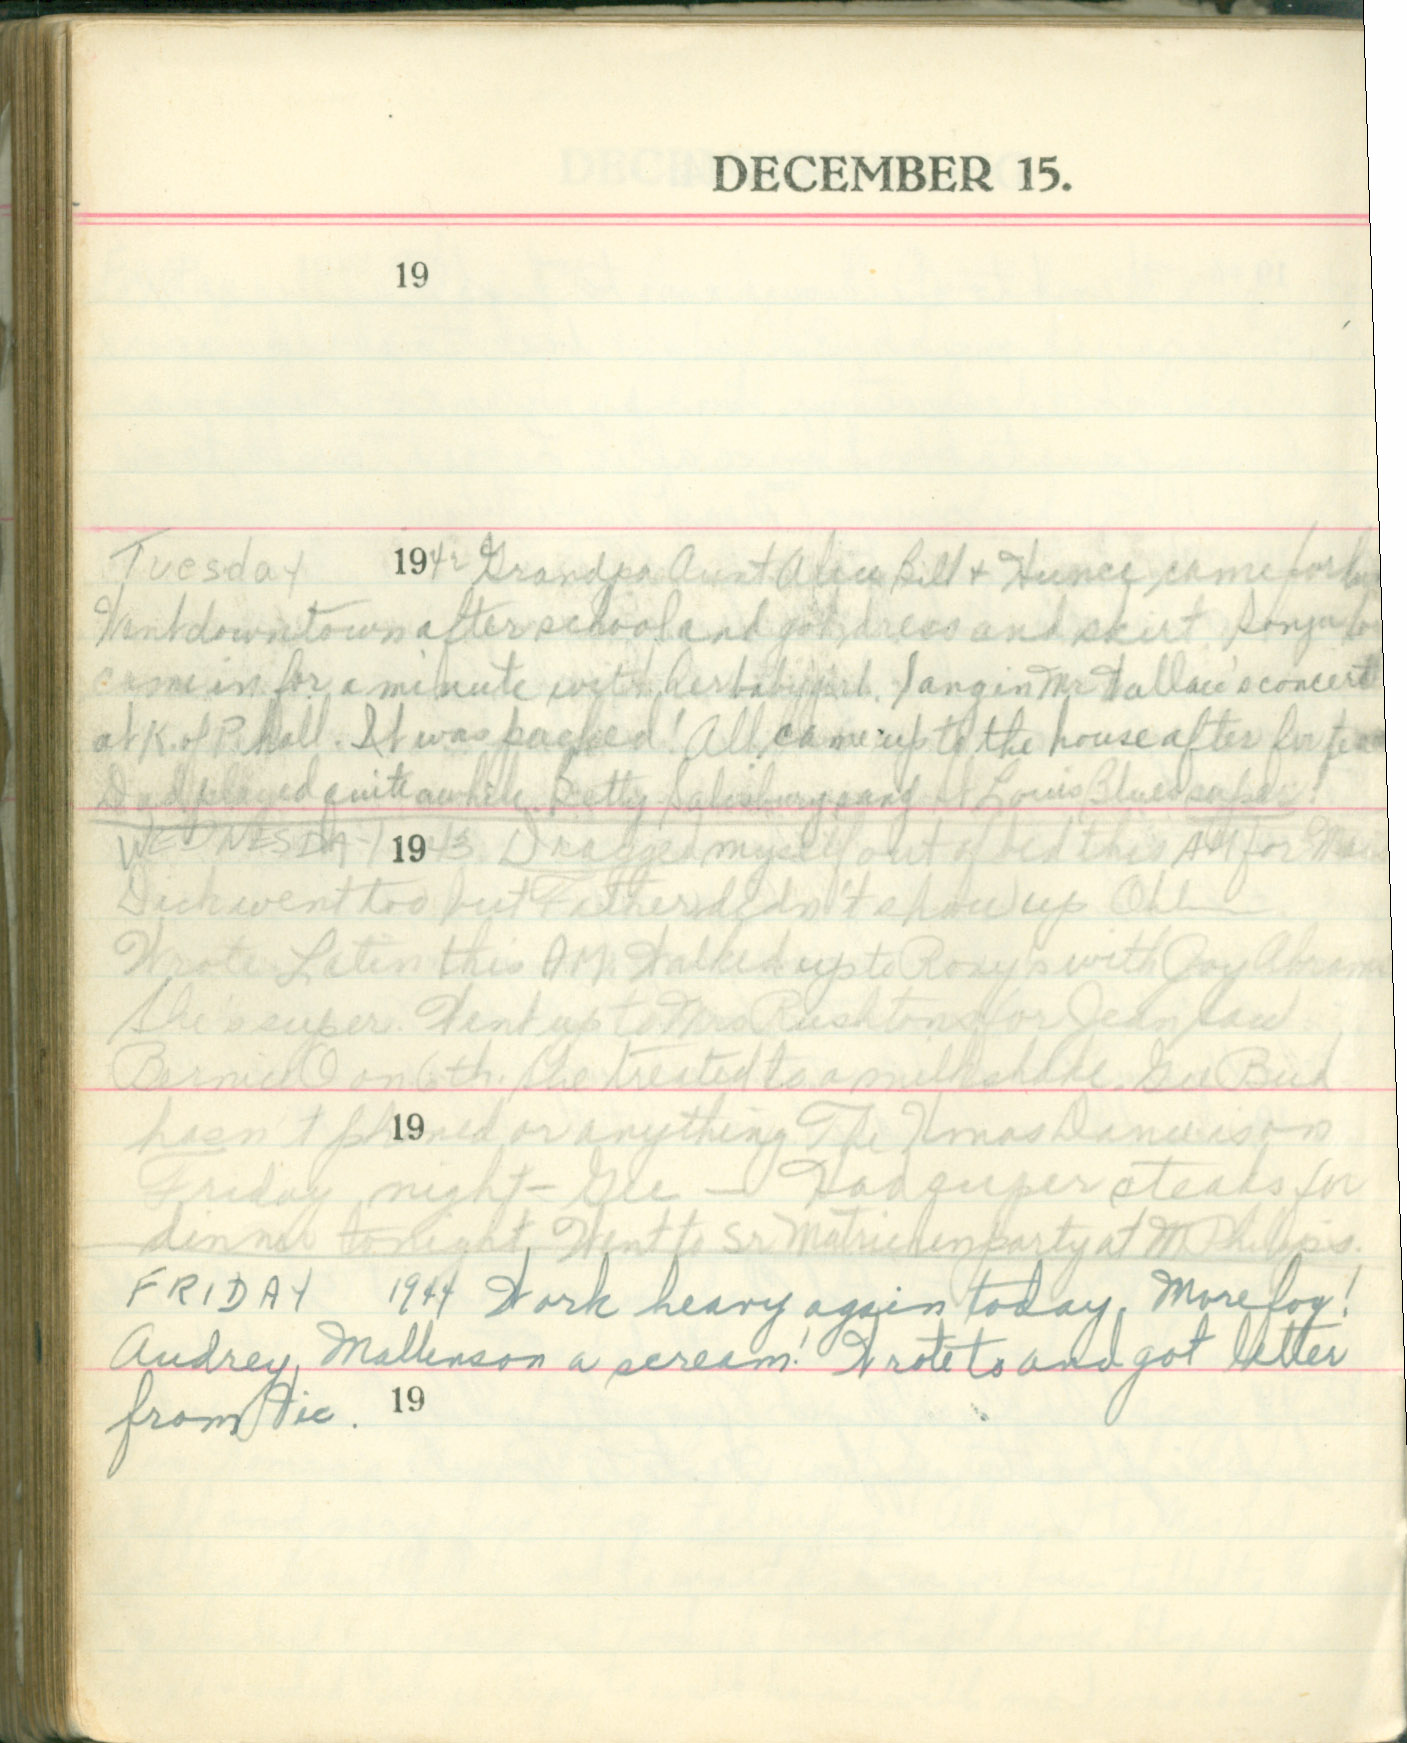 DECEMBER 15.
19
Tuesday 1942 Grandpa Aunt Alice Bill & Hunce came for
Went downtown after school and got dress and skirt Sonja
came in for a minute with her baby girl. Sang in Mr Wallace's concert
at K. of P. hall. It was packed! All came up to the house after for tea
Dad played quite awhile. Betty Salisbury sang St Louis Blues super!
WEDNESDAY 1943 Dragged myself out of bed this AM for Mass
Dick went too but Father didn't show up Oh!—
Wrote Latin this A.M. Walked up to Roxy's with Joy Abrams
She's super. Went up to Mrs Rushtons for Jean saw
Bernice O on 6th. She treated to a milkshake. Gee Bud
19
hasn't phoned or anything The Xmas Dance is on
Friday night - Gee — Had super steaks for
dinner tonight. Went to Sr Matric party at M Philips.
FRIDAY 1944 Work heavy again today. More fog!
Audrey Mallenson a scream! Wrote to and got letter
from Vic.
19